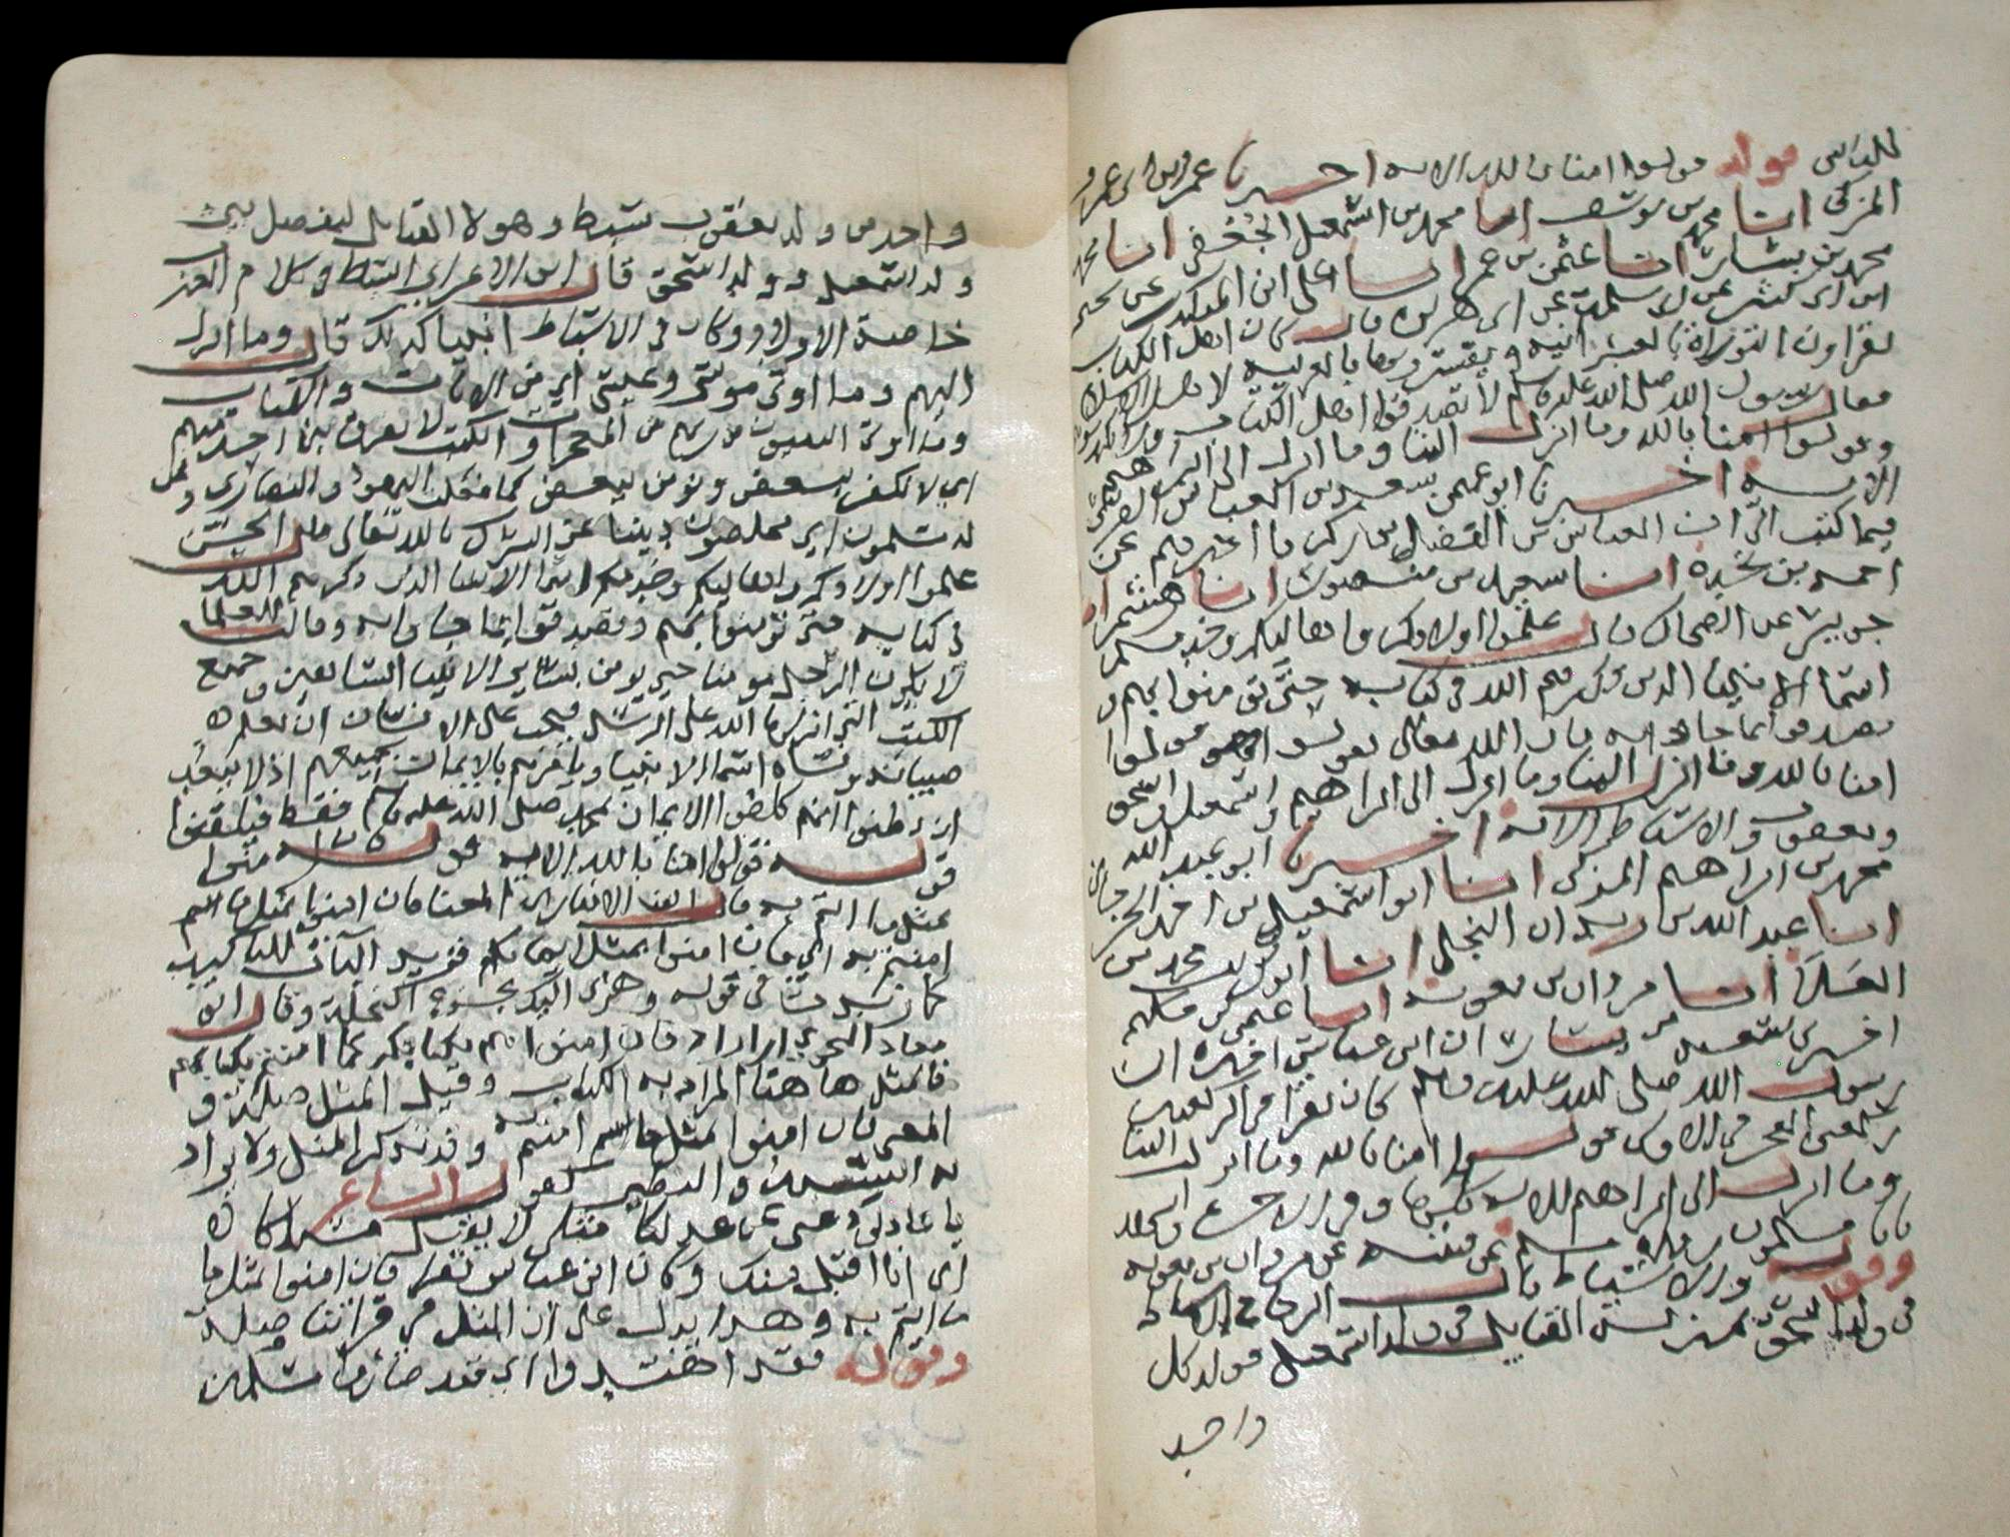 للناس قوله قولوا امنا بالله الاية اخبرنا عمرو بن ابي عمرو
المزكي انا محمد بن يوسف انا محمد بن اسمعيل الجعفي انا محمد
محمد بن بشار انا عثمن بن عمر انا علي ابن المبارك عن يحيى
ابن ابي كثير عن ابي سلمة عن ابي هريرة قال كان اهل الكتاب
يقراون التوراة بالعبرانية ويفسرونها بالعربية لاهل الاسلام
فقال رسول الله صلى الله عليه وسلم لا تصدقوا اهل الكتاب ولا تكذبوهم
وقولوا امنا بالله وما انزل الينا وما انزل الى ابراهيم
الاية اخبرنا ابو عثمن سعيد بن العباس القرشي
فيما كتب الي ان العباس بن الفضل بن زكريا اخبرهم عن
احمد بن نجدة انا سعيد بن منصور انا هشيم انا
جويبر عن الضحاك قال علموا اولادكم واهاليكم وخدمكم
اسما الانبيا الذين ذكرهم الله في كتابه حتى تومنوا بهم و
تصدقوا بما جاوا به فان الله تعالى يقول قولوا
امنا بالله وما انزل الينا وما انزل الى ابراهيم واسمعيل واسحق
ويعقوب والاسباط الاية اخبرنا ابو عبد الله
محمد بن ابراهيم المزكي انا ابو اسمعيل بن احمد الجرجاني
انا عبد الله بن زيدان البجلي انا ابو كريب محمد بن
العلا انا مروان بن معوية انا عثمن بن حكيم
اخبرني سعيد بن يسار ان ابن عباس اخبره ان
رسول الله صلى الله عليه وسلم كان يقرا في ركعتي
الفجر في الاولى قولوا امنا بالله وما انزل الينا
وما انزل الى ابراهيم للاية كلها وفي الاخرى
بانا مسلمون رواه مسلم عن قتيبة عن مروان بن معوية
وقوله والاسباط قال الزجاج الاسباط
في ولد اسحق بمنزلة القبايل في ولد اسمعيل فولد كل
واحد
واحد من ولد يعقوب سبط وهولا القبايل ليفصل بين
ولد اسمعيل وولد اسحق قال ابن الاعرابي السبط في كلام العرب
خاصة الاولاد وكان في الاسباط انبيا كذلك قال وما انزل
اليهم وما اوتي موسى وعيسى اي من الايات والكتاب
وما اوتي النبيون من ربهم من المعجزات والكتب لا نفرق بين احد منهم
اي لا نكفر ببعض ونومن ببعض كما فعلت اليهود والنصارى ونحن
له مسلمون اي مخلصون ديننا عن الشرك بالله تعالى قال الحسن
علموا اولادكم واهاليكم وخدمكم اسما الانبيا الذين ذكرهم الله
في كتابه حتى تومنوا بهم وتصدقوا بما جاوا به وقالت العلما
لا يكون الرجل مومنا حتى يومن بساير الانبيا السابقين وجميع
الكتب التي انزلها الله على الرسل فيجب على الانسان ان يعلم
صبيانه ونساه اسما الانبيا ويامرهم بالايمان بجميعهم اذ لا يبعد
ان يظنوا انهم كلفوا الايمان بمحمد صلى الله عليه وسلم فقط فيلقنوا
قوله قولوا امنا بالله الاية قوله فان امنوا
بمثل ما امنتم به قال ابن الانباري المعنى فان امنوا بمثل ما
امنتم به اي فان امنوا بمثل ايمانكم فتزيد البا للتاكيد
كما زيدت في قوله وهزي اليك بجذع النخلة وقال ابو
معاذ النحوي اراد فان امنوا هم بكتابكم كما امنتم بكتابهم
فالمثل هاهنا المراد به الكتاب وقيل المثل صلة و
المعنى فان امنوا بما امنتم به وقد يذكر المثل ولا يراد
به الشبيه والنظير كقول الشاعر
يا عاذلي دعني من عذلكا مثلي لا يقبل من مثلكا
اي انا لا اقبل منك وكان ابن عباس يقرا فان امنوا بما
امنتم به وهذا يدل على ان المثل في قراتنا صلة
وقوله فقد اهتدوا اي فقد صاروا مسلمين